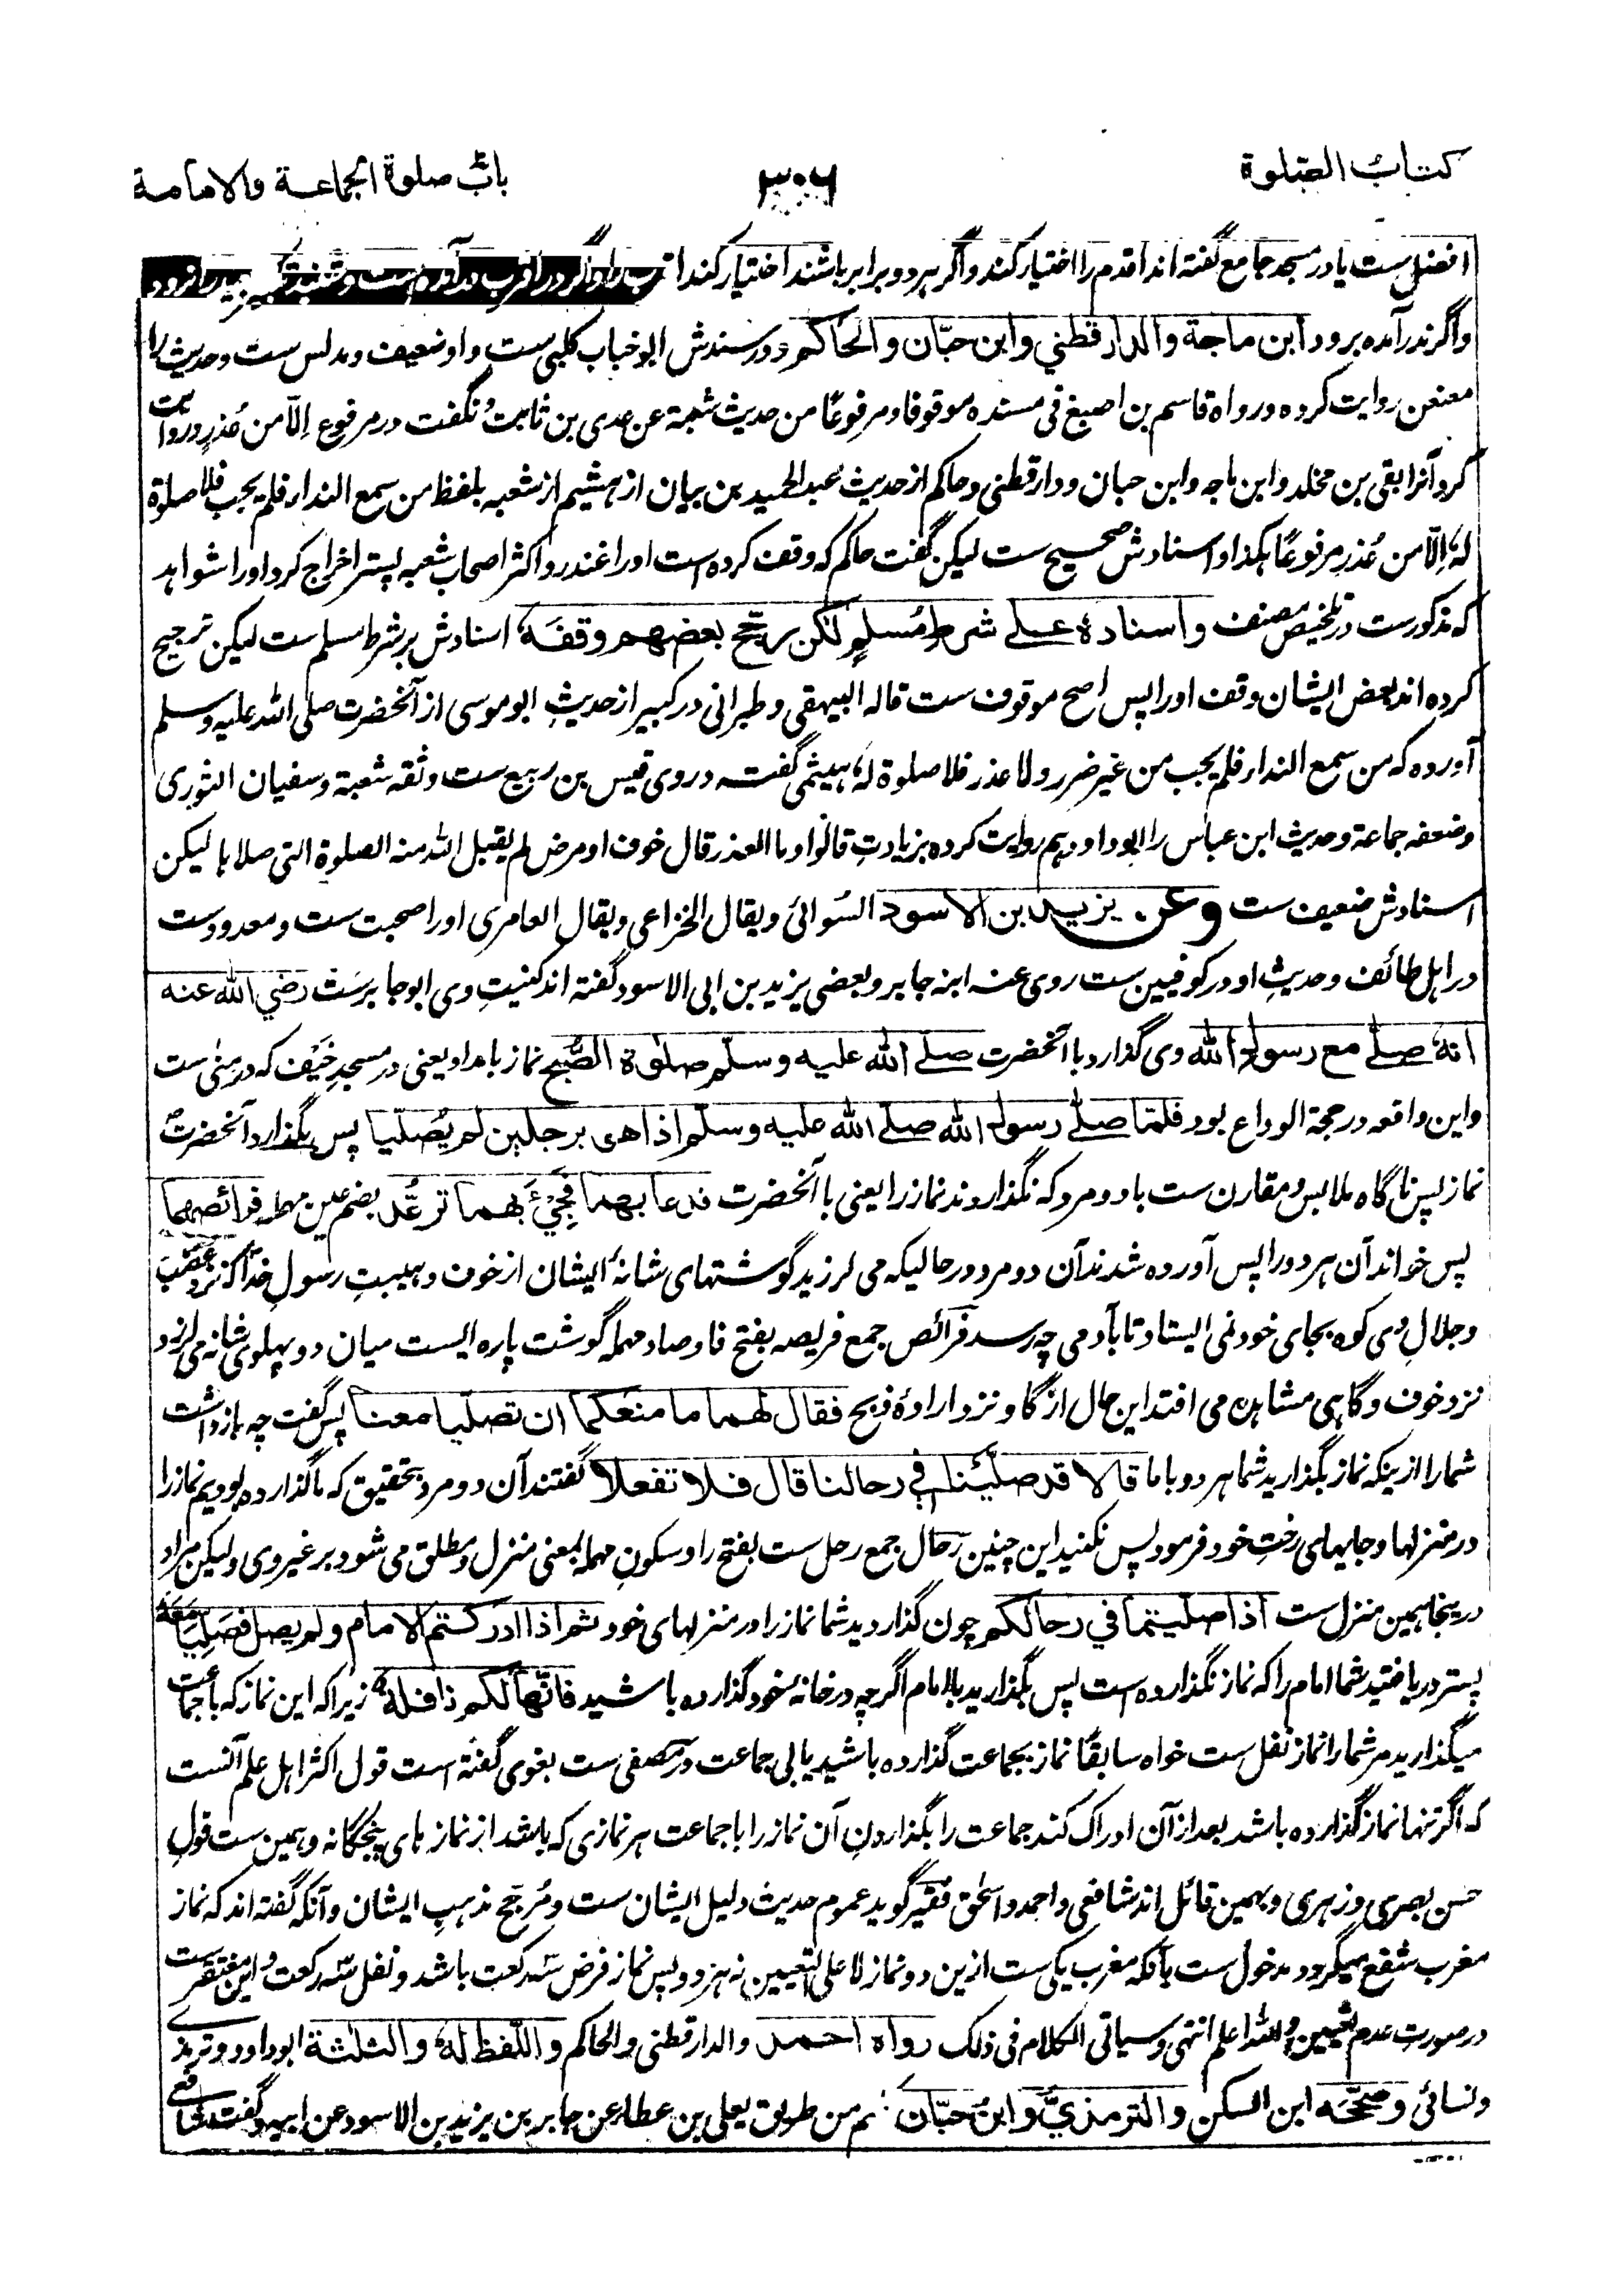 كتاب الصلوة
٣٠٦
باب صلوة الجماعة والامامة
افضل ست یا در مسجد جامع گفته اند اقدم را اختیار کند و اگر هر دو برابر باشند اختیار کند اقرب را و اگر در اقرب درآمده است و شنید تکبیر
واگر ندرآمده برود ابن ماجة والدارقطني وابن حبّان والحاكم ودر سندش ابو خباب کلبی ست و او ضعیف و مدلس ست و حدیث را
معنعن روایت کرده ورواه قاسم بن اصبغ فی مسنده موقوفا و مرفوعًا من حدیث شعبة عن عدی بن ثابت و نگفت در مرفوع اِلّا من عُذرٍ و روایت
کرد آنرا بقی بن مخلد وابن ماجه وابن حبان و دارقطنی و حاکم از حدیث عبد الحمید بن بیان از هشیم از شعبه بلفظ من سمع النداء فلم یجب فلا صلوة
لهٗ اِلّا من عُذرٍ مرفوعًا هکذا و اسنادش صحیح ست لیکن گفت حاکم که وقف کرده است او را غندر و اکثر اصحاب شعبه پستر اخراج کرد او را شواهد
که مذکورست در تلخیص مصنف واسناده على شرط مُسلمٍ لكن رجّح بعضهم وقفَهٗ اسنادش بر شرط مسلم ست لیکن ترجیح
کرده اند بعض ایشان وقف او را پس اصح موقوف ست قاله البیهقی و طبرانی در کبیر از حدیثِ ابو موسی از آنحضرت صلی الله علیه وسلم
آورده که من سمع النداء فلم یجب من غیر ضرر ولا عذر فلا صلوة لهٗ هیثمی گفته در وی قیس بن ربیع ست وثقه شعبة و سفیان الثوری
وضعفه جماعة و حدیث ابن عباس را ابوداود هم روایت کرده بزیادتِ قالوا وما العذر قال خوف او مرض لم یقبل الله منه الصلوة التی صلاها لیکن
اسنادش ضعیف ست وعن يزيد بن الاسود السُوائی ویقال الخزاعی ویقال العامری او را صحبت ست و معدودست
در اهل طائف و حدیثِ او در کوفیین ست روی عنه ابنه جابر و بعضی یزید بن ابی الاسود گفته اند کنیتِ وی ابو جابرست رضي الله عنه
انهٗ صلى مع رسول الله وی گذارد با آنحضرت صلى الله عليه وسلم صلوة الصُّبح نماز بامداد یعنی در مسجدِ خَیْف که در مِنٰی ست
واین واقعه در حجة الوداع بود فلمّا صلّى رسول الله صلى الله عليه وسلم اذا هو برجلين لم يُصليا پس بگذارد آنحضرت
نماز پس ناگاه ملابس و مقارن ست با دو مرد که نگذاردند نماز را یعنی با آنحضرت فدعا بهما فجيء بهما ترعُد بضم عین مهمله فرائصهما
پس خواند آن هر دو را پس آورده شدند آن دو مرد در حالیکه می لرزید گوشتهای شانهٔ ایشان از خوف و هیبتِ رسولِ خدا که نزد غضب
وجلالِ وی کوه بجای خود نمی ایستاد تا بآدمی چه رسد فرائص جمع فریصه بفتح فا و صاد مهمله گوشت پاره ایست میان دو پهلوی شانه می لرزد
نزد خوف و گاهی مشاهده می افتد این حال از گاو نزد ارادهٔ ذبح فقال لهما ما منعكما ان تصليا معنا پس گفت چه بازداشت
شما را ازینکه نماز بگذارید شما هر دو با ما قالا قد صلّينا في رحالنا قال فلا تفعلا گفتند آن دو مرد بتحقیق که ما گذارده بودیم نماز را
در منزلها و جایهای رختِ خود فرمود پس نکنید این چنین رحال جمع رحل ست بفتح را و سکونِ مهمله بمعنی منزل و مطلق می شود بر غیر وی ولیکن مراد
درینجا همین منزل ست اذا صليتما في رحالكم چون گذاردید شما نماز را در منزلهای خود ثم اذا ادركتم الامام ولم يصل فصَلِّيا معَهٗ
پستر دریافتید شما امام را که نماز نگذارده است پس بگذارید با امام اگرچه در خانه خود گذارده باشید فانها لكم نافلة زیرا که این نماز که باجماعت
میگذارید مر شما را نماز نفل ست خواه سابقًا نماز بجماعت گذارده باشید یا بی جماعت در مصفی ست بغوی گفته است قول اکثر اهل علم آنست
که اگر تنها نماز گذارده باشد بعد از آن ادراک کند جماعت را بگذاردنِ آن نماز را با جماعت هر نمازی که باشد از نماز های پنجگانه و همین ست قولِ
حسن بصری و زهری و بهمین قائل اند شافعی و احمد و اسحٰق فقیر گوید عموم حدیث دلیل ایشان ست و مُرجّح مذهبِ ایشان و آنکه گفته اند که نماز
مغرب شفع میگردد مدخول ست بآنکه مغرب یکی ست ازین دو نماز لا علی التعیین نه هر دو پس نماز فرض سَه رکعت باشد و نفل سَه رکعت و این مغتفرست
در صورتِ عدم تعیین والله اعلم انتهی وسیاتی الکلام فی ذلک رواه احمد والدارقطنی والحاکم واللفظ لهٗ والثلٰثة ابوداود و ترمذی
ونسائی وصحّحَه ابن السكن والترمذيُّ وابنُ حبّان من طریق یعلی بن عطاء عن جابر بن یزید بن الاسود عن ابیه و گفت شافعی